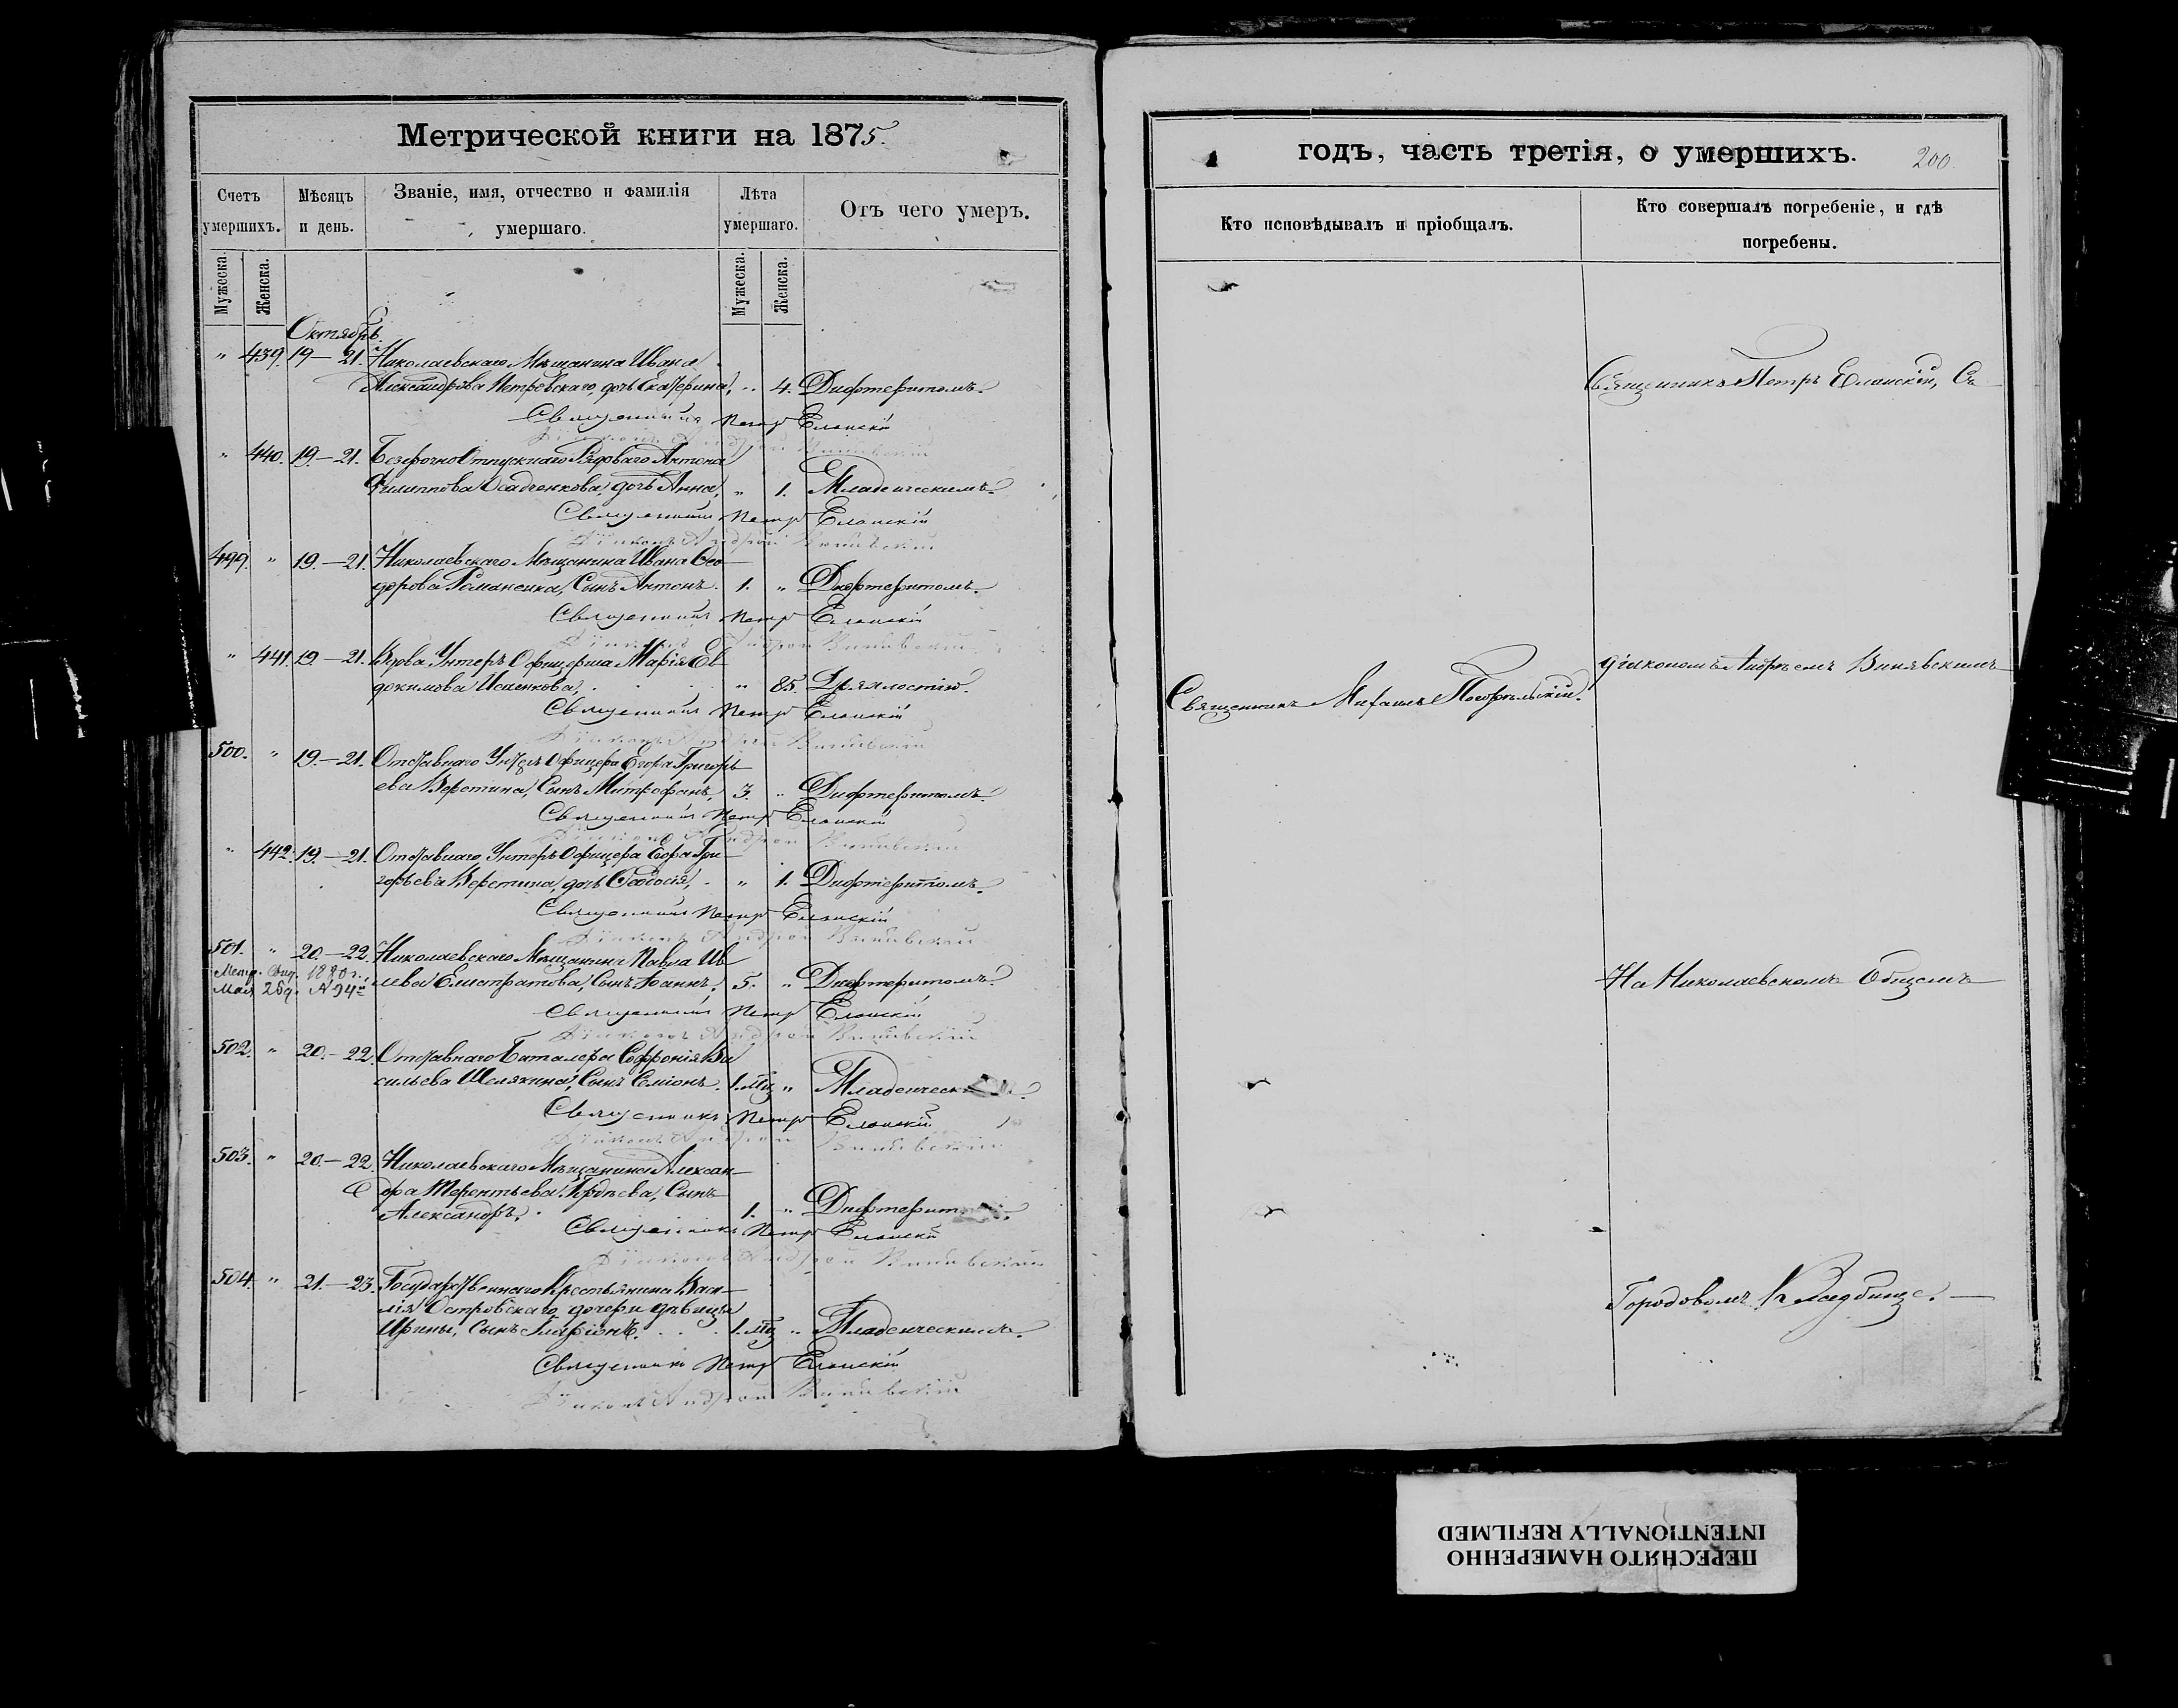 Метрической книги на 1875.
Счетъ умершихъ.
Мѣсяцъ и день.
Званіе, имя, отчество и фамилія умершаго.
Лѣта умершаго.
Отъ чего умеръ.
Мужеска. Женска.
Мужеска. Женска.
Октябрь.
" 439. 19–21. Николаевскаго Мѣщанина Ивана
Александрова Петровскаго, дочь Екатерина, " 4. Дифтеритомъ.
Священникъ Петръ Еланскій
" 440. 19–21. Безсрочноотпускнаго Рядоваго Антона
Филиппова Осадченкова, дочь Анна, " 1. Младенческимъ.
Священникъ Петръ Еланскій
Діаконъ Андрей Винявскій
499. " 19.–21. Николаевскаго Мѣщанина Ивана Ѳео-
дорова Романенка, Сынъ Антонъ. 1. " Дифтеритомъ.
Священникъ Петръ Еланскій
Діаконъ Андрей Винявскій
" 441. 19–21. Вдова Унтеръ Офицерша Марія Ев-
докимова " 85. Дряхлостію.
Священникъ Петръ Еланскій
Діаконъ Андрей Винявскій
500. " 19.–21. Отставнаго Унтеръ Офицера Егора Григорь-
ева Веретина, Сынъ Митрофанъ, 3. " Дифтеритомъ.
Священникъ Петръ Еланскій
Діаконъ Андрей Винявскій
" 442. 19.–21. Отставнаго Унтеръ Офицера Егора Гри-
горьева Веретина, дочь Ѳеодосія, " 1. Дифтеритомъ.
Священникъ Петръ Еланскій
Діаконъ Андрей Винявскій
501. " 20.–22. Николаевскаго Мѣщанина Павла
Елистратова, Сынъ Іоаннъ, 5. " Дифтеритомъ.
Метр. Выд. 1880 г.
Мая 26 д. №
Священникъ Петръ Еланскій
Діаконъ Андрей Винявскій
502. " 20.–22. Отставнаго Баталера Софронія Ва-
сильева Шелякина, Сынъ 1. мц. " Младенческимъ.
Священникъ Петръ Еланскій
Діаконъ Андрей Винявскій
503. " 20.–22. Николаевскаго Мѣщанина Алексан-
дра Терентьева Сынъ
Александръ, 1. " Дифтеритомъ.
Священникъ Петръ Еланскій
Діаконъ Андрей Винявскій
504. " 21.–23. Государственнаго Крестьянина Васи-
лія Островскаго дочери дѣвицы
Ирины, Сынъ Иларіонъ. 1. мц. " Младенческимъ.
Священникъ Петръ Еланскій
Діаконъ Андрей Винявскій
годъ, часть третія, о умершихъ. 200.
Кто исповѣдывалъ и пріобщалъ.
Кто совершалъ погребеніе, и гдѣ погребены.
Священникъ Петръ Еланскій, Съ
діакономъ Андреемъ Винявскимъ
Священникъ Михаилъ Погорѣльскій.
На Николаевскомъ Общемъ
Городовомъ Кладбищѣ.
ПЕРЕСНЯТО НАМЕРЕННО
INTENTIONALLY REFILMED